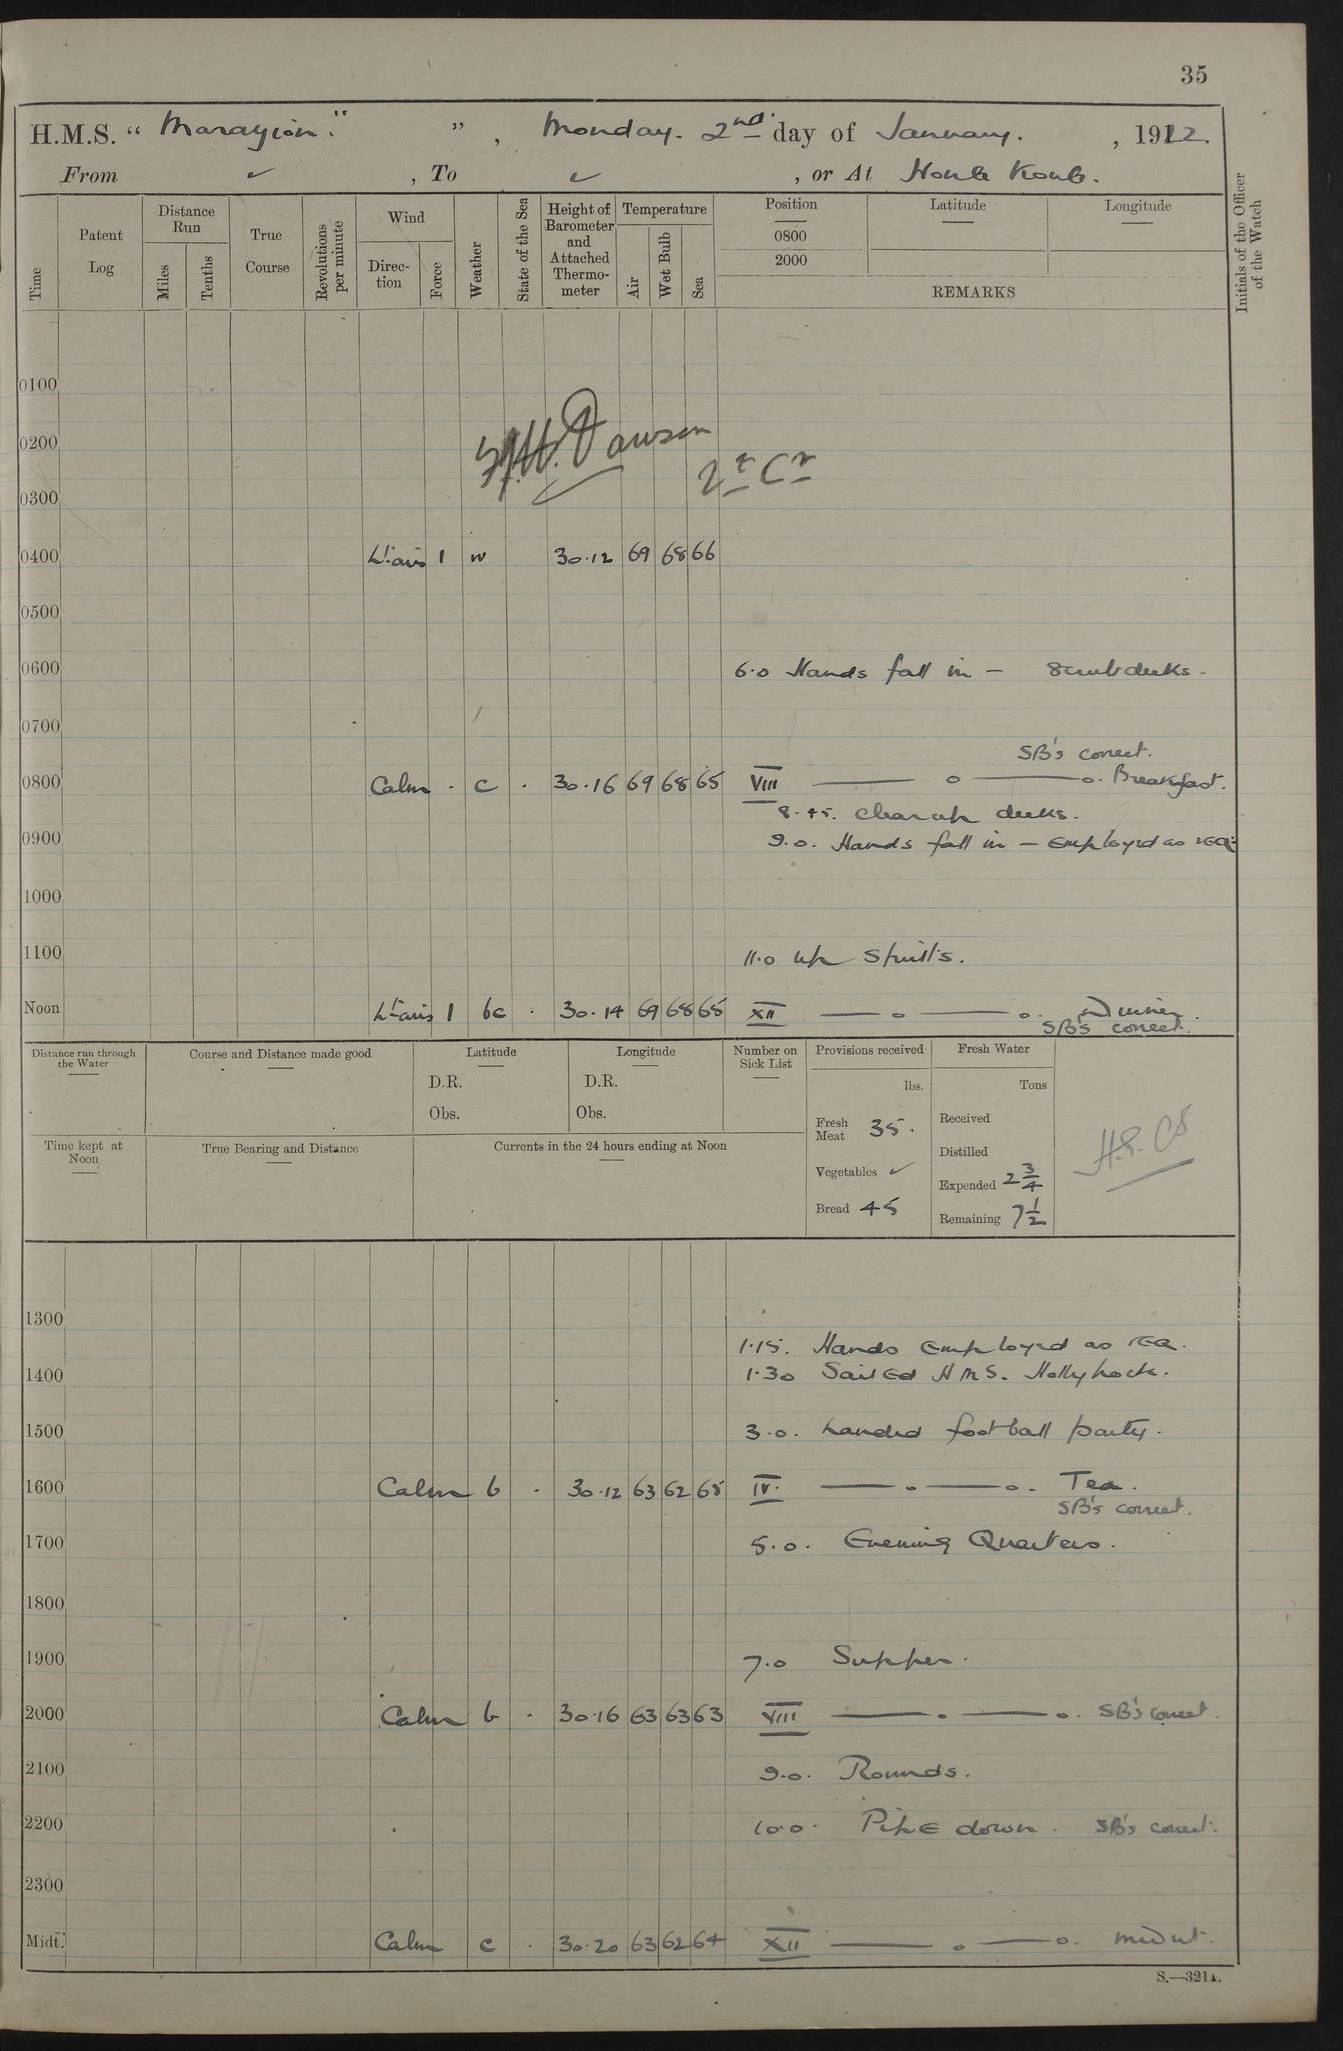 35
H.M.S. “ Marazion." ” , Monday. 2nd day of January. , 1922.
From ✓ , To ✓ , or At Hong Kong.
Time Patent Log Distance Run Miles Tenths True Course Revolutions per minute Wind Direction Force Weather State of the Sea Height of Barometer and Attached Thermometer Temperature Air Wet Bulb Sea Position 0800 2000 Latitude Longitude REMARKS Initials of the Officer of the Watch
0100
0200 Dawson
0300
0400 Lt airs 1 30.12 69 68 66
0500
0600 6.0 Hands fall in – Scrub decks.
0700
SB's correct.
0800 Calm . c . 30.16 69 68 65 VIII —— o —— o. Breakfast.
8.45. Clear up decks.
0900 9.0. Hands fall in – Employed as req
1000
1100 11.0 Up Spirits.
Noon Lt airs 1 bc . 30.14 69 68 65 XII —— o —— o. Dinner.
SB's correct.
Distance run through the Water Course and Distance made good Latitude D.R. Obs. Longitude D.R. Obs. Number on Sick List
Time kept at Noon True Bearing and Distance Currents in the 24 hours ending at Noon
Provisions received lbs.
Fresh Meat 35.
Vegetables ✓
Bread 45
Fresh Water Tons
Received
Distilled
Expended 2 3/4
Remaining 7 1/2
1300
1.15. Hands Employed as req.
1400 1.30 Sailed H M S. Hollyhock.
1500 3.0. Landed football party.
1600 Calm b . 30.12 63 62 65 IV. —— o —— o. Tea.
SB's correct.
1700 5.0. Evening Quarters.
1800
1900 7.0 Supper.
2000 Calm b . 30.16 63 63 63 VIII —— o —— o. SB's correct.
2100 9.0. Rounds.
2200 10.0. Pipe down. SB's correct.
2300
Midt. Calm c . 30.20 63 62 64 XII —— o —— o. midnt.
S.—321A.